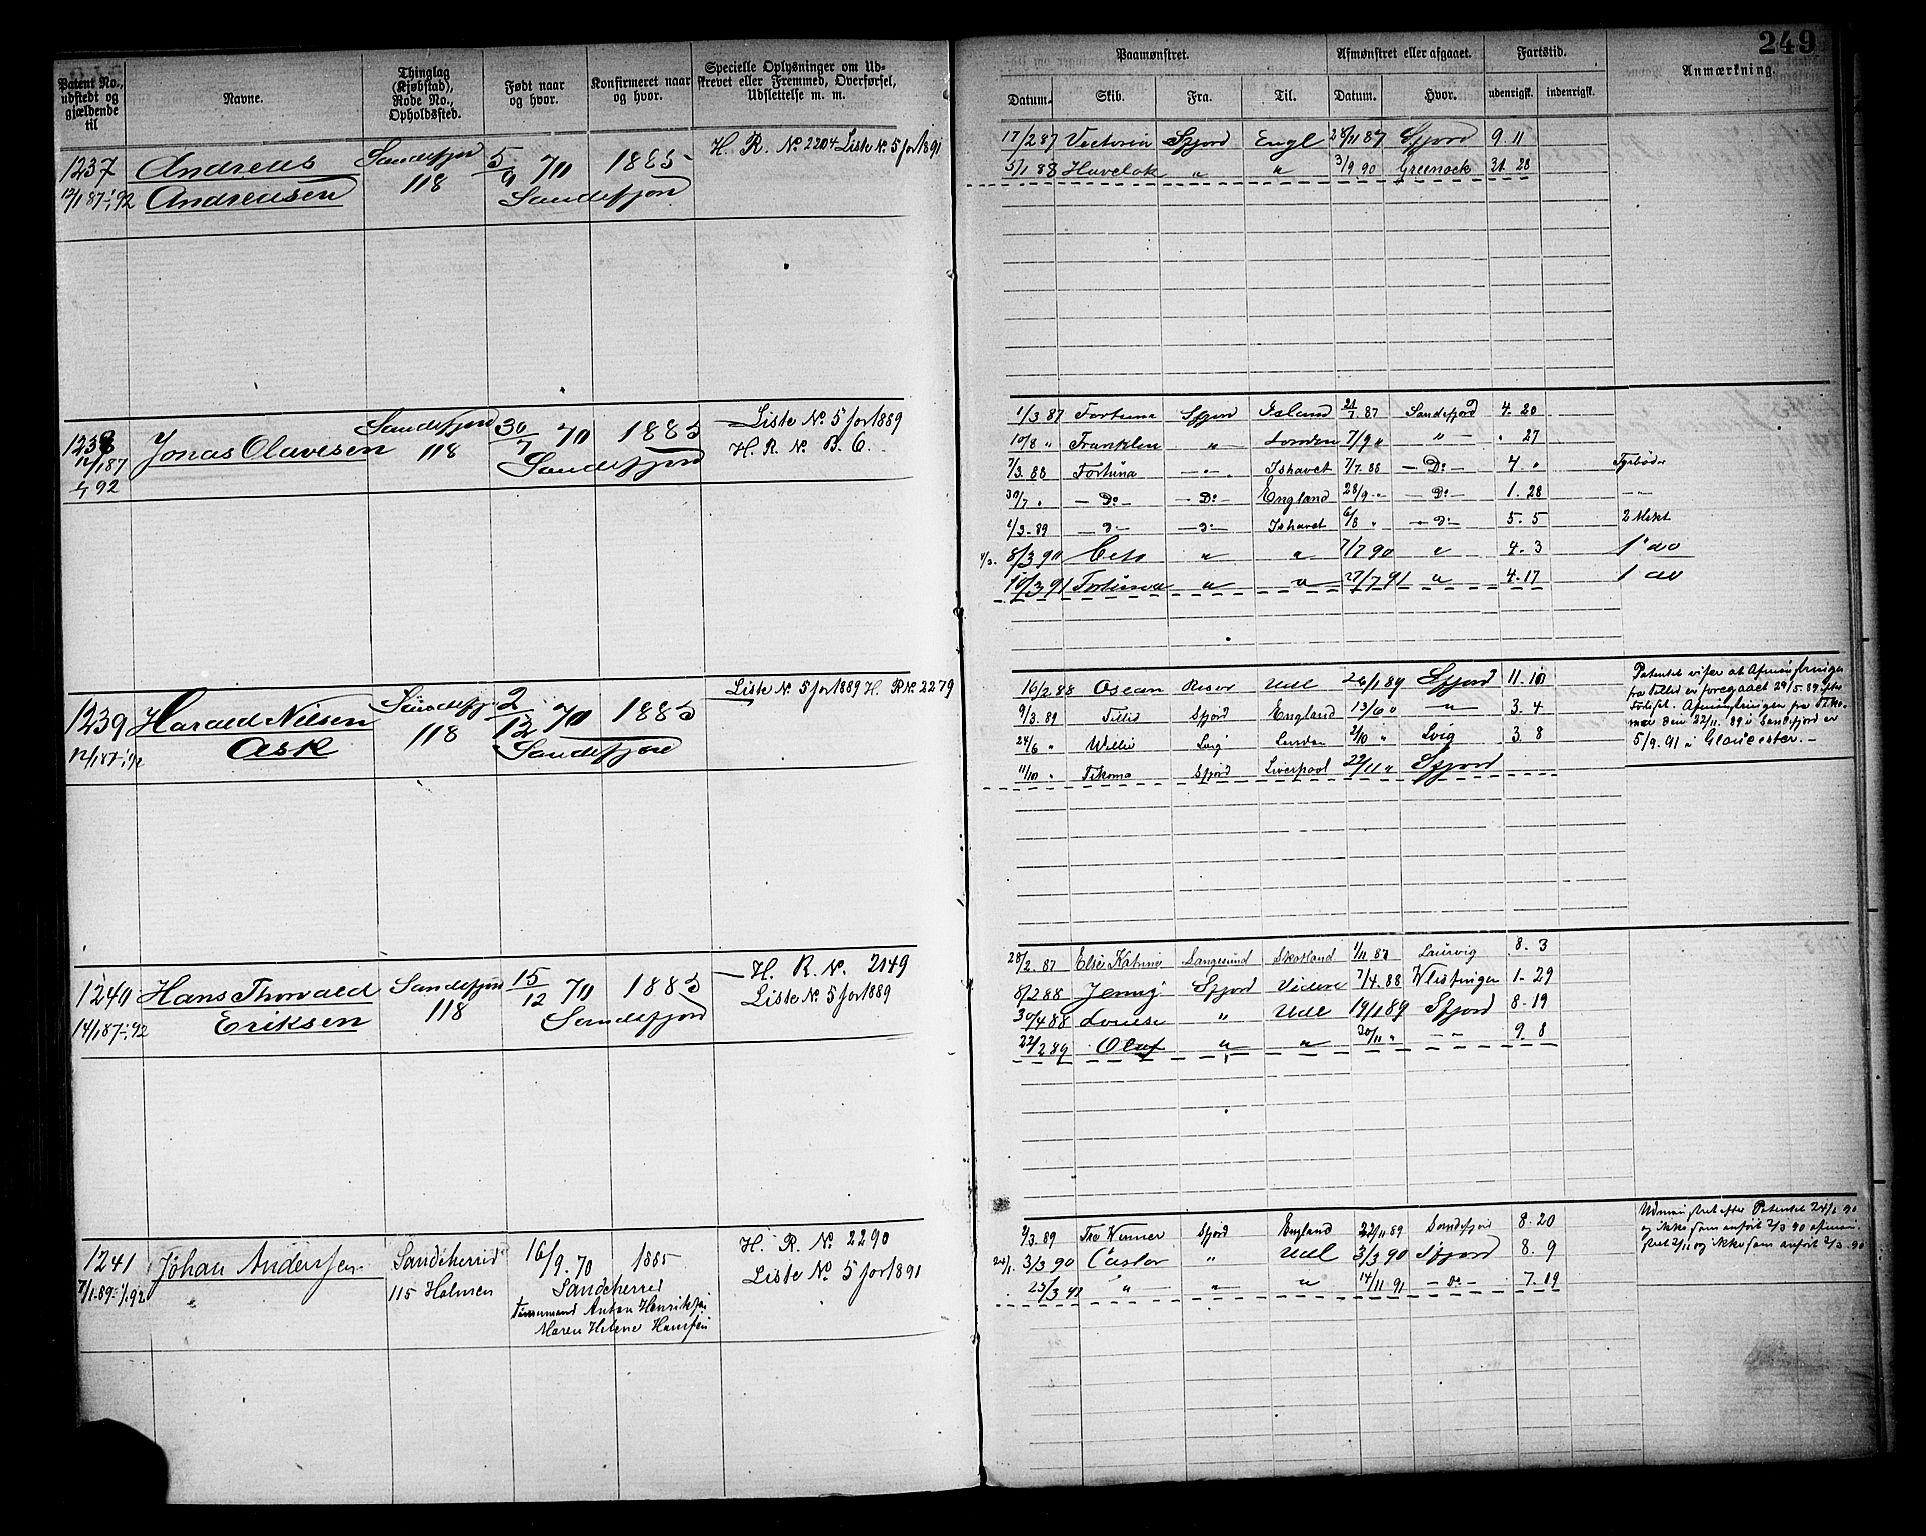 249
Patent No., udstedt og gjældende til
Navne.
Thinglag (Kjøbstad), Rode No., Opholdssted.
Født naar og hvor.
Konfirmeret naar og hvor.
Specielle Oplysninger om Udskrevet eller Fremmed, Overførsel, Udslettelse m. m.
Paamønstret.
Afmønstret eller afgaaet.
Fartstid.
Anmærkning.
Datum. Skib. Fra. Til. Datum. Hvor. udenrigsk. indenrigsk.
1237 Andreas Sandefjord 5/9 70 1885 H. R. No 2204 Liste N. 5 for 1891
12/1 87-1/1 92 Andreasen 118 Sandefjord
17/2 87 Victoria Sfjord Engl 28/11 87 Sfjord 9. 11
5/1 88 Havelok " " 3/9 90 Greenock 31. 28
1238 Jonas Olavesen Sandefjord 30/7 70 1885 Liste No. 5 for 1889
12/1 87 118 Sandefjord H. R. N. B. 6.
1/1 92
1/3. 87 Fortuna Sfjord Island 21/7. 87 Sandefjord 4. 20
10/8 " Franklin " London 7/9 " " 27
1/3. 88 Fortuna " Ishavet 7/7. 88 - Do - 4. " Fyrbøder
30/7 " - Do - - Do - England 28/9 " - Do - 1. 28 - " -
1/3 - 89 - D - - D - Ishavet 6/8 " - D - 5. 5 2 Mskt
8/3 90 " " 7/7 90 " 4. 3 1 " do
10/3 91 Fortuna " " 27/7 91 " 4. 17 1 do
1239 Harald Nilsen Sandefjord 2/12 70 1885 Liste N. 5 for 1889 H. R. N. 2279
12/1 87-1/1 92 Ask 118 Sandefjord
16/2 88 Osean Risør Udl 26/1 89 Sfjord 11. 10
9/3. 89 Tillid Sfjord England 13/6 " " 3. 4
24/6 " Willie Lvig London 2/10 " Lvig 3. 8
11/10 " Tekoma Sfjord Liverpool 22/11 " Sfjord
Patentet viser at Afmønstringen
fra Tillid er foregaaet 29/5. 89
Afmønstringen fra Teko-
ma den 22/11. 89 i Sandefjord er
5/9. 91 i Gloucester. -
1240 Hans Thorvald Sandefjord 15/12 70 1885 H. R. N. 2149
14/1 87-1/1 92 Eriksen 118 Sandefjord Liste No. 5 for 1889
28/2. 87 Else Katrine Langesund Skotland 1/11 87 Laurvig 8. 3
8/2 88 Jenny Sfjord 7/4. 88 Vlissingen 1. 29
30/4 88 Louise " Udl 19/1 89 Sfjord 8. 19
22/2 89 Olaf " " 20/11 " - " - 9. 8
1241 Johan Andersen Sandeherred 16/9. 70 1885 H. R. No 2290
7/1. 89-1/1. 92 115 Holmen Sandeherred Liste No. 5 for 1891
Tømmermand Anton Henriksen
Maren Helene Hansen
2/3. 89 Sfjord England 22/11 89 Sandefjord 8. 20
24/1. 3/3 90 Castor " Udl 3/3 90 Sfjord 8. 9
25/3 91 " " " 14/11 91 - Do - 7. 19
Udmønstret efter Patentet 24/1 90
og ikke som anført 3/3 90 afmøn-
stret 2/11 og ikke som anført 3/3. 90